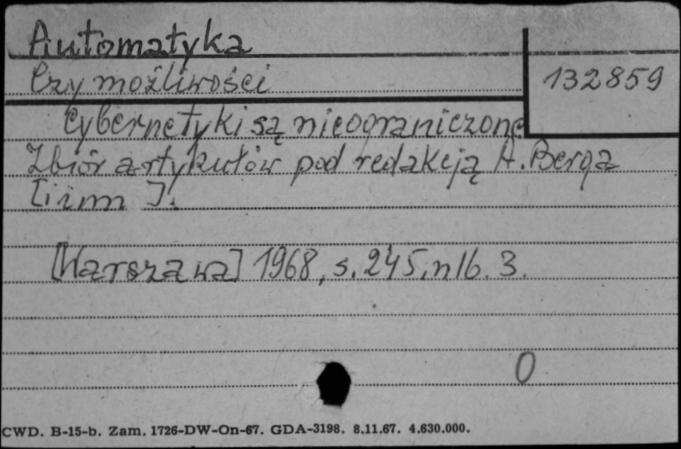 Automatyka
Czy możliwości
132859
Cybernetyki są nieograniczone
Zbiór artykułów pod redakcją A. Berga
[i inn].
[Warszawa] 1968, s. 245, nlb. 3.
0
CWD. B-15-b. Zam. 1726-DW-On-67. GDA-3198. 8.11.67. 4.630.000.